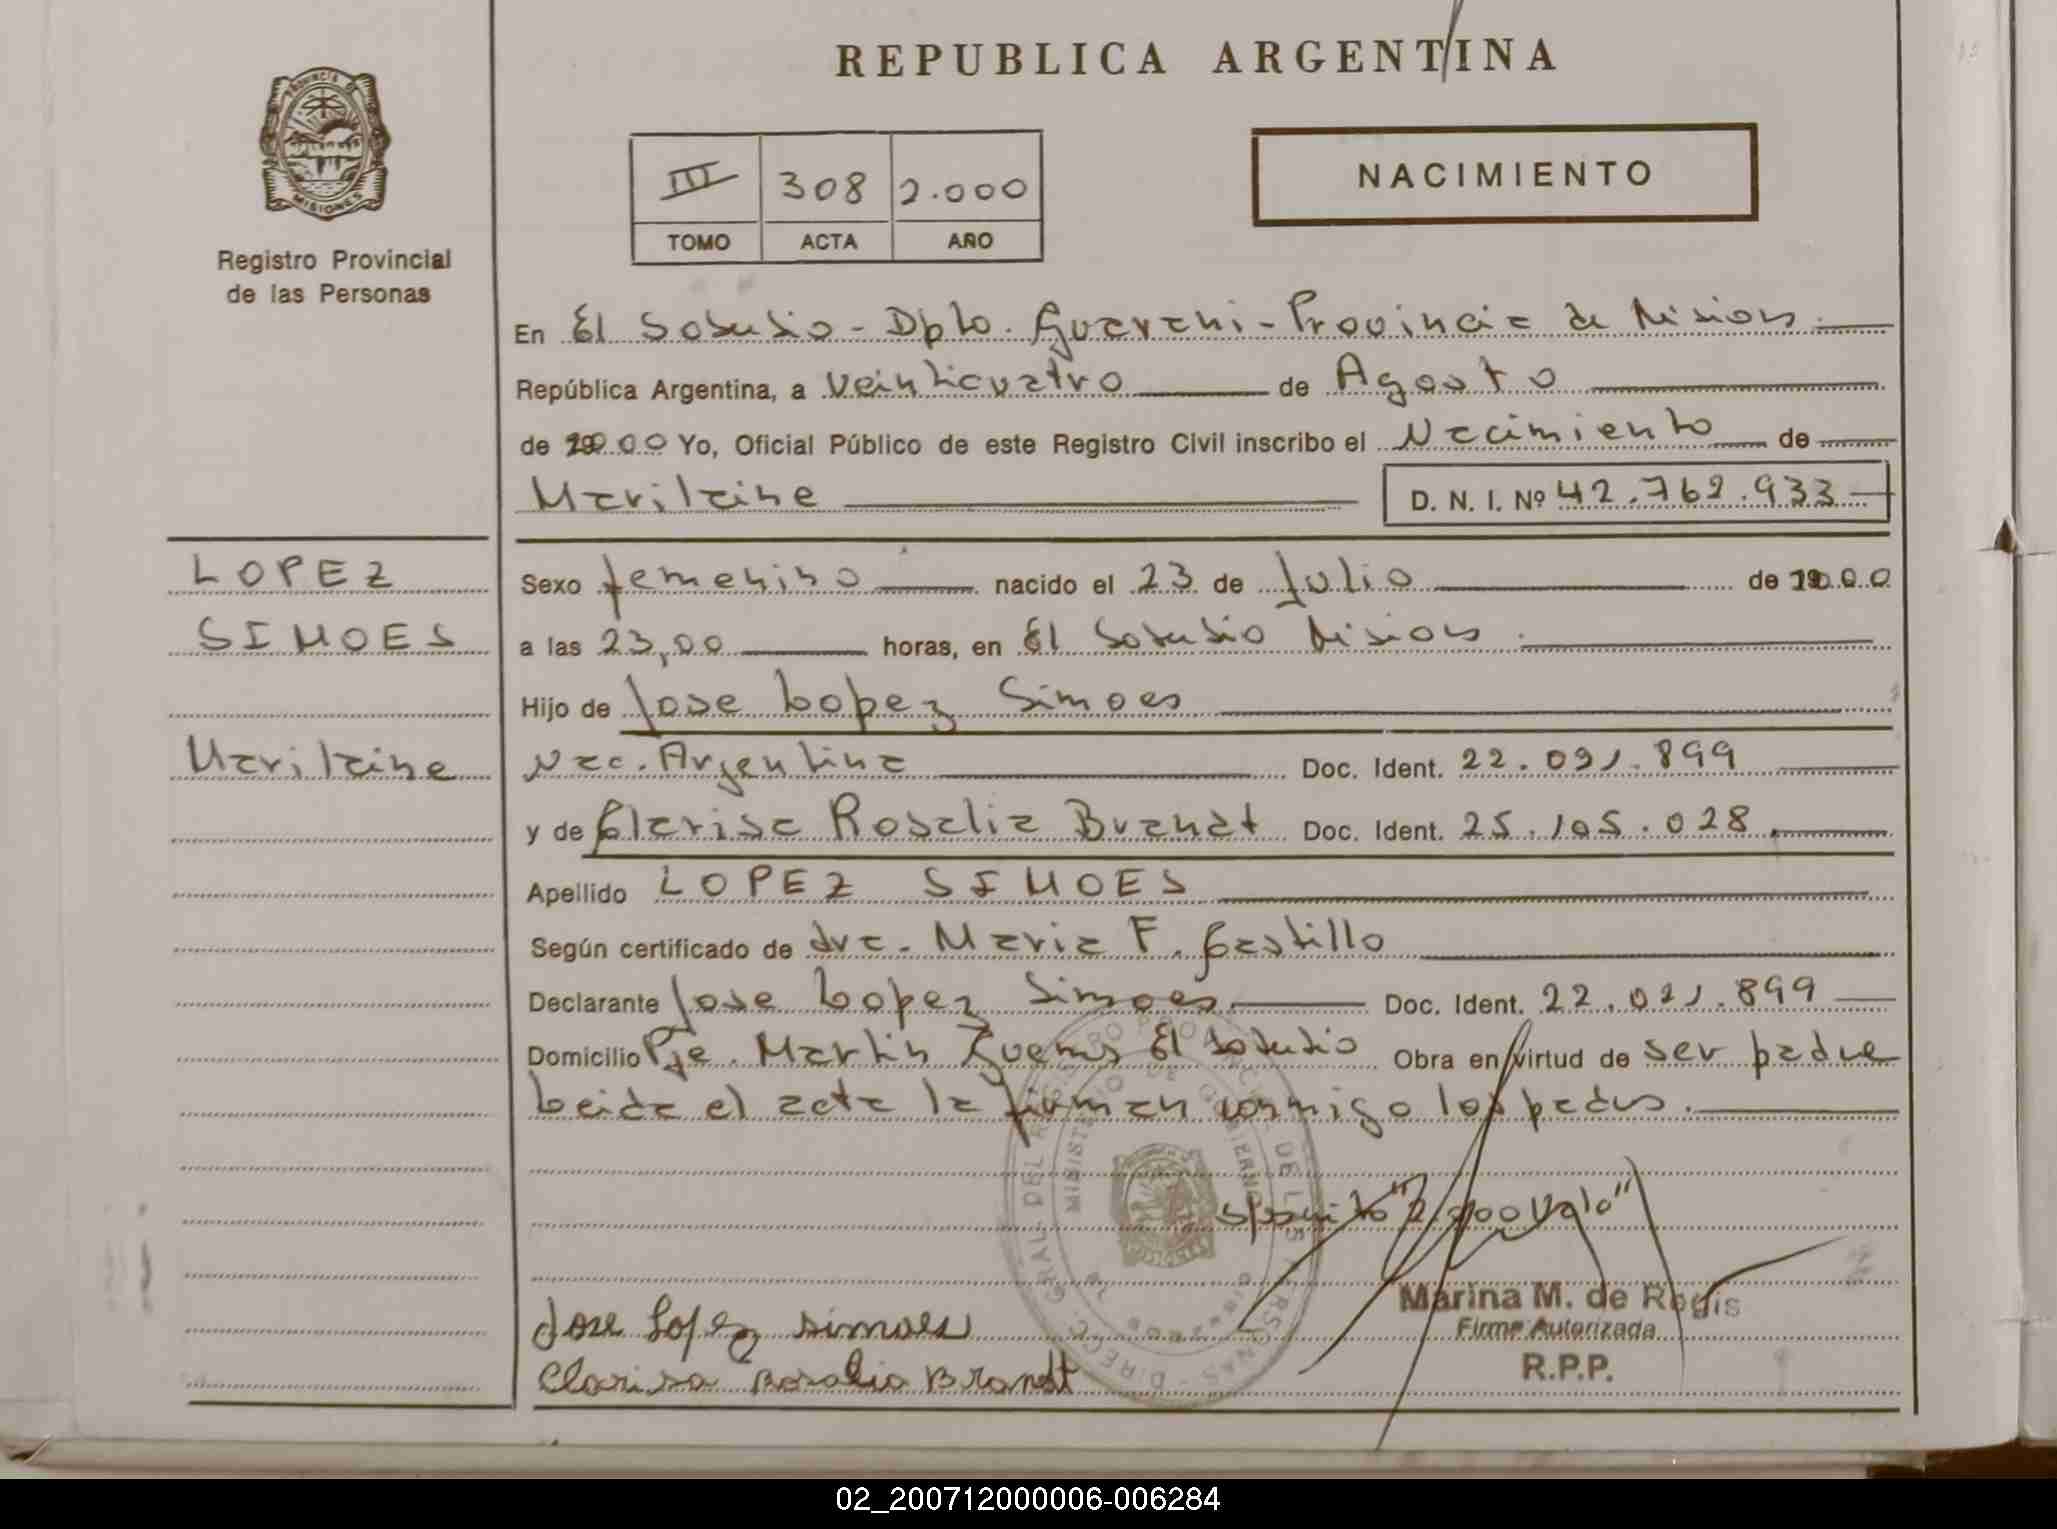 REPUBLICA ARGENTINA
PROVINCIA DE
MISIONES
Registro Provincial
de las Personas
III 308 2.000
TOMO ACTA AÑO
NACIMIENTO
En El Soberbio - Dpto. Guarani - Provincia de Misiones.
República Argentina, a veinticuatro de Agosto
de 2000 Yo, Oficial Público de este Registro Civil inscribo el Nacimiento de
Marilaine D. N. I. Nº 42.762.933
LOPEZ
SIMOES
Marilaine
Sexo femenino nacido el 23 de Julio de 2000
a las 23,00 horas, en El Soberbio Misiones.
Hijo de Jose Lopez Simoes
Nac. Argentina Doc. Ident. 22.021.899
y de Clarisa Rosalia Brandt Doc. Ident. 25.105.028.
Apellido LOPEZ SIMOES
Según certificado de dra. Maria F. Castillo
Declarante Jose Lopez Simoes Doc. Ident. 22.021.899
Domicilio Pje. Martin Guemes El Soberbio Obra en virtud de ser padre
Leida el acta la firman conmigo los padres.
"2.000 Vale"
Jose Lopez simoes
Clarisa Rosalia Brandt
Marina M. de Regis
Firma Autorizada
R.P.P.
02_200712000006-006284